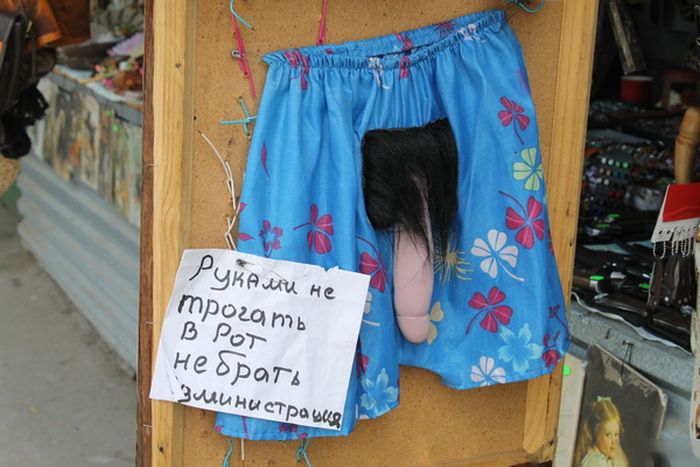 Руками не
трогать
в Рот
не брать
эминистрация